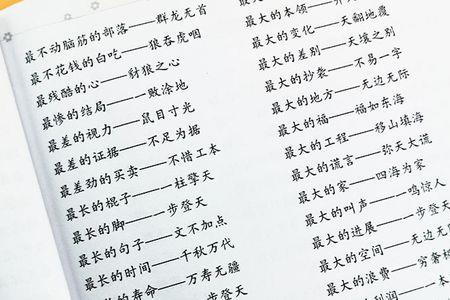 最不动脑筋的部落——群龙无首
最不花钱的白吃——狼吞虎咽
最残酷的心——豺狼之心
最惨的结局——一败涂地
最差的视力——鼠目寸光
最差的证据——不足为据
最差劲的买卖——不惜工本
最长的棍子——一柱擎天
最长的脚——一步登天
最长的句子——文不加点
最长的时间——千秋万代
的寿命——万寿无疆
步登天
最大的本领——
最大的变化——天翻地覆
最大的差别——天壤之别
最大的抄袭——不易一字
最大的地方——无边无际
最大的福——福如东海
最大的工程——移山填海
最大的谎言——弥天大谎
最大的家——四海为家
最大的叫声——一鸣惊人
最大的进展——一步登天
最大的空间——无边无
最大的浪费——穷奢
利润——一本